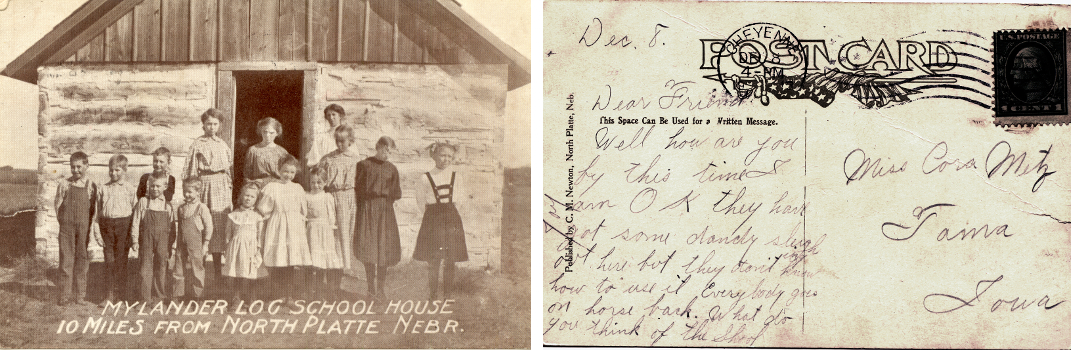 MYLANDER LOG SCHOOL HOUSE
10 MILES FROM NORTH PLATTE NEBR.
Dec. 8.
POST CARD
CHEYENNE
DEC 8
4-PM
U.S. POSTAGE
1 CENT 1
Dear Friend
This Space Can Be Used for a Written Message.
Well how are you
by this time I
am O K they have
got some dandy sleigh
ing
out here but they don't know
how to use it Everybody goes
on horse back. What do
you think of the Shool
Published by C. M. Newton, North Platte, Neb.
Miss Cora Metz
Tama
Iowa